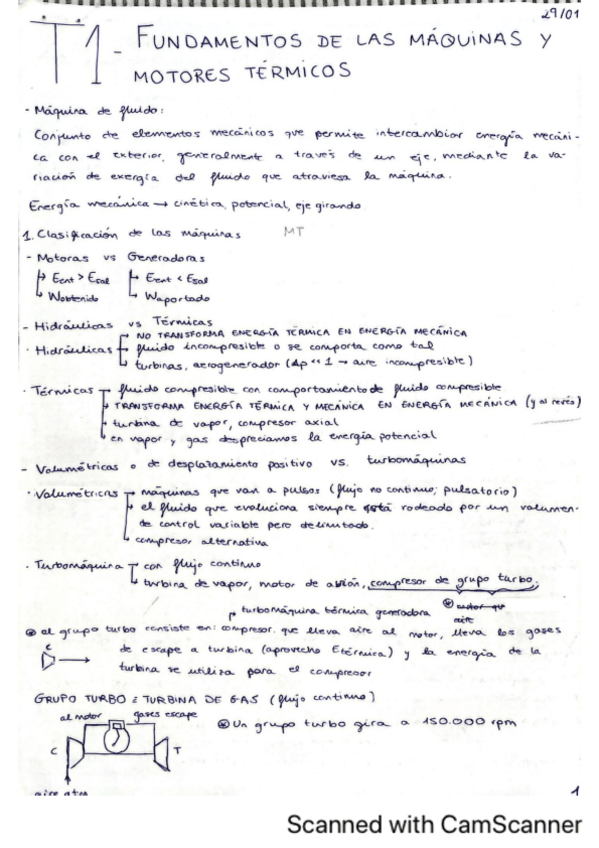 29/01
T1- FUNDAMENTOS DE LAS MÁQUINAS Y
MOTORES TÉRMICOS
- Máquina de fluido:
Conjunto de elementos mecánicos que permite intercambiar energía mecáni-
ca con el exterior, generalmente a través de un eje, mediante la va-
riación de exergía del fluido que atraviesa la máquina.
Energía mecánica → cinética, potencial, eje girando
1. Clasificación de las máquinas MT
- Motoras vs Generadoras
Eent > Esal Eent < Esal
Wobtenido Waportado
- Hidráulicas vs Térmicas
NO TRANSFORMA ENERGÍA TÉRMICA EN ENERGÍA MECÁNICA
· Hidráulicas fluido incompresible o se comporta como tal
turbinas, aerogenerador (Δp ≪ 1 → aire incompresible)
· Térmicas fluido compresible con comportamiento de fluido compresible
TRANSFORMA ENERGÍA TÉRMICA Y MECÁNICA EN ENERGÍA MECÁNICA (y al revés)
turbina de vapor, compresor axial
en vapor y gas despreciamos la energía potencial
- Volumétricas o de desplazamiento positivo vs. turbomáquinas
· Volumétricas máquinas que van a pulsos (flujo no continuo; pulsatorio)
el fluido que evoluciona siempre está rodeado por un volumen
de control variable pero delimitado.
compresor alternativa
· Turbomáquina con flujo continuo
turbina de vapor, motor de avión, compresor de grupo turbo.
turbomáquina térmica generadora
el grupo turbo consiste en: compresor que lleva aire al motor, lleva los gases
c de escape a turbina (aprovecho Etérmica) y la energía de la
turbina se utiliza para el compresor
GRUPO TURBO ≠ TURBINA DE GAS (flujo continuo)
al motor gases escape
Un grupo turbo gira a 150.000 rpm
C T
aire atm
1
Scanned with CamScanner